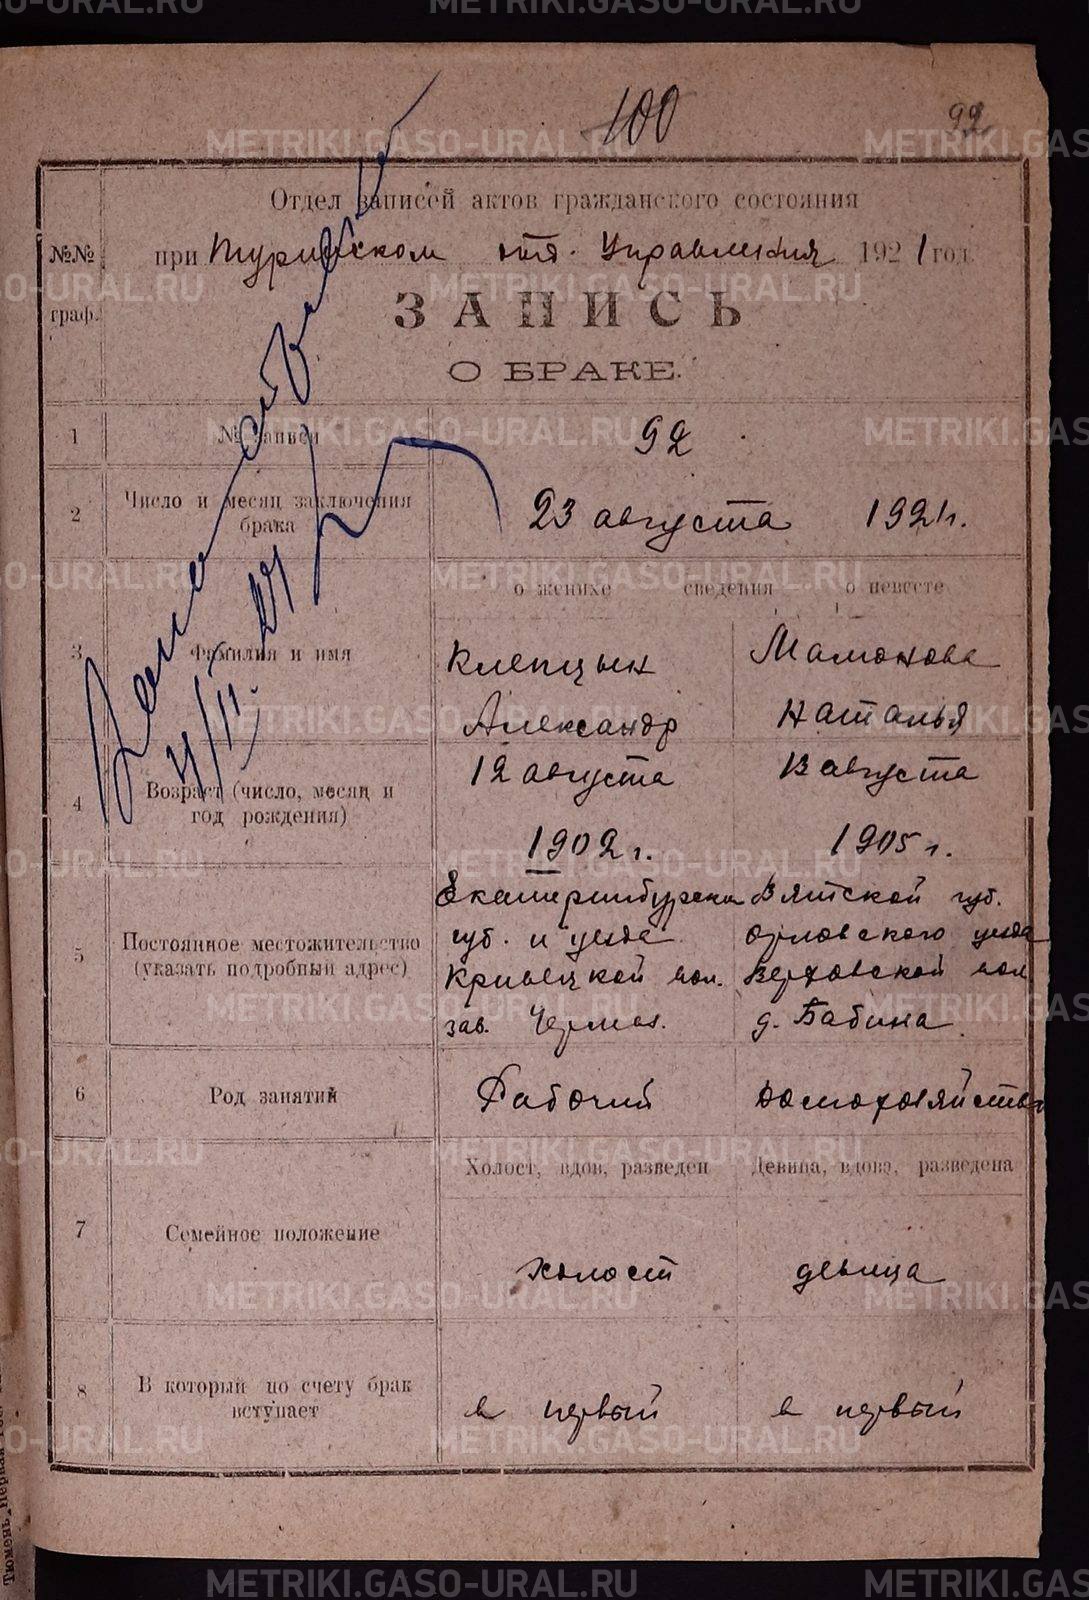 100
92
Отдел записей актов гражданского состояния
№№ граф.
при Туринском отд. Управления 1921 год.
ЗАПИСЬ
О БРАКЕ.
1 № записи 92
2 Число и месяц заключения брака 23 августа 1921 г.
о женихе сведения о невесте
3 Фамилия и имя
Клепцын Мамонова
Александр Наталья
4 Возраст (число, месяц и год рождения)
12 августа 13 августа
1902 г. 1905 г.
5 Постоянное местожительство (указать подробный адрес)
Екатеринбургской Вятской губ.
губ. и уезда Орловского уезда
вол. Верховской вол
зав. д. Бабина
6 Род занятий Рабочий домохозяйство
Холост, вдов, разведен Девица, вдова, разведена
7 Семейное положение холост девица
8 В который по счету брак вступает
в первый в первый
4/II.
METRIKI.GASO-URAL.RU